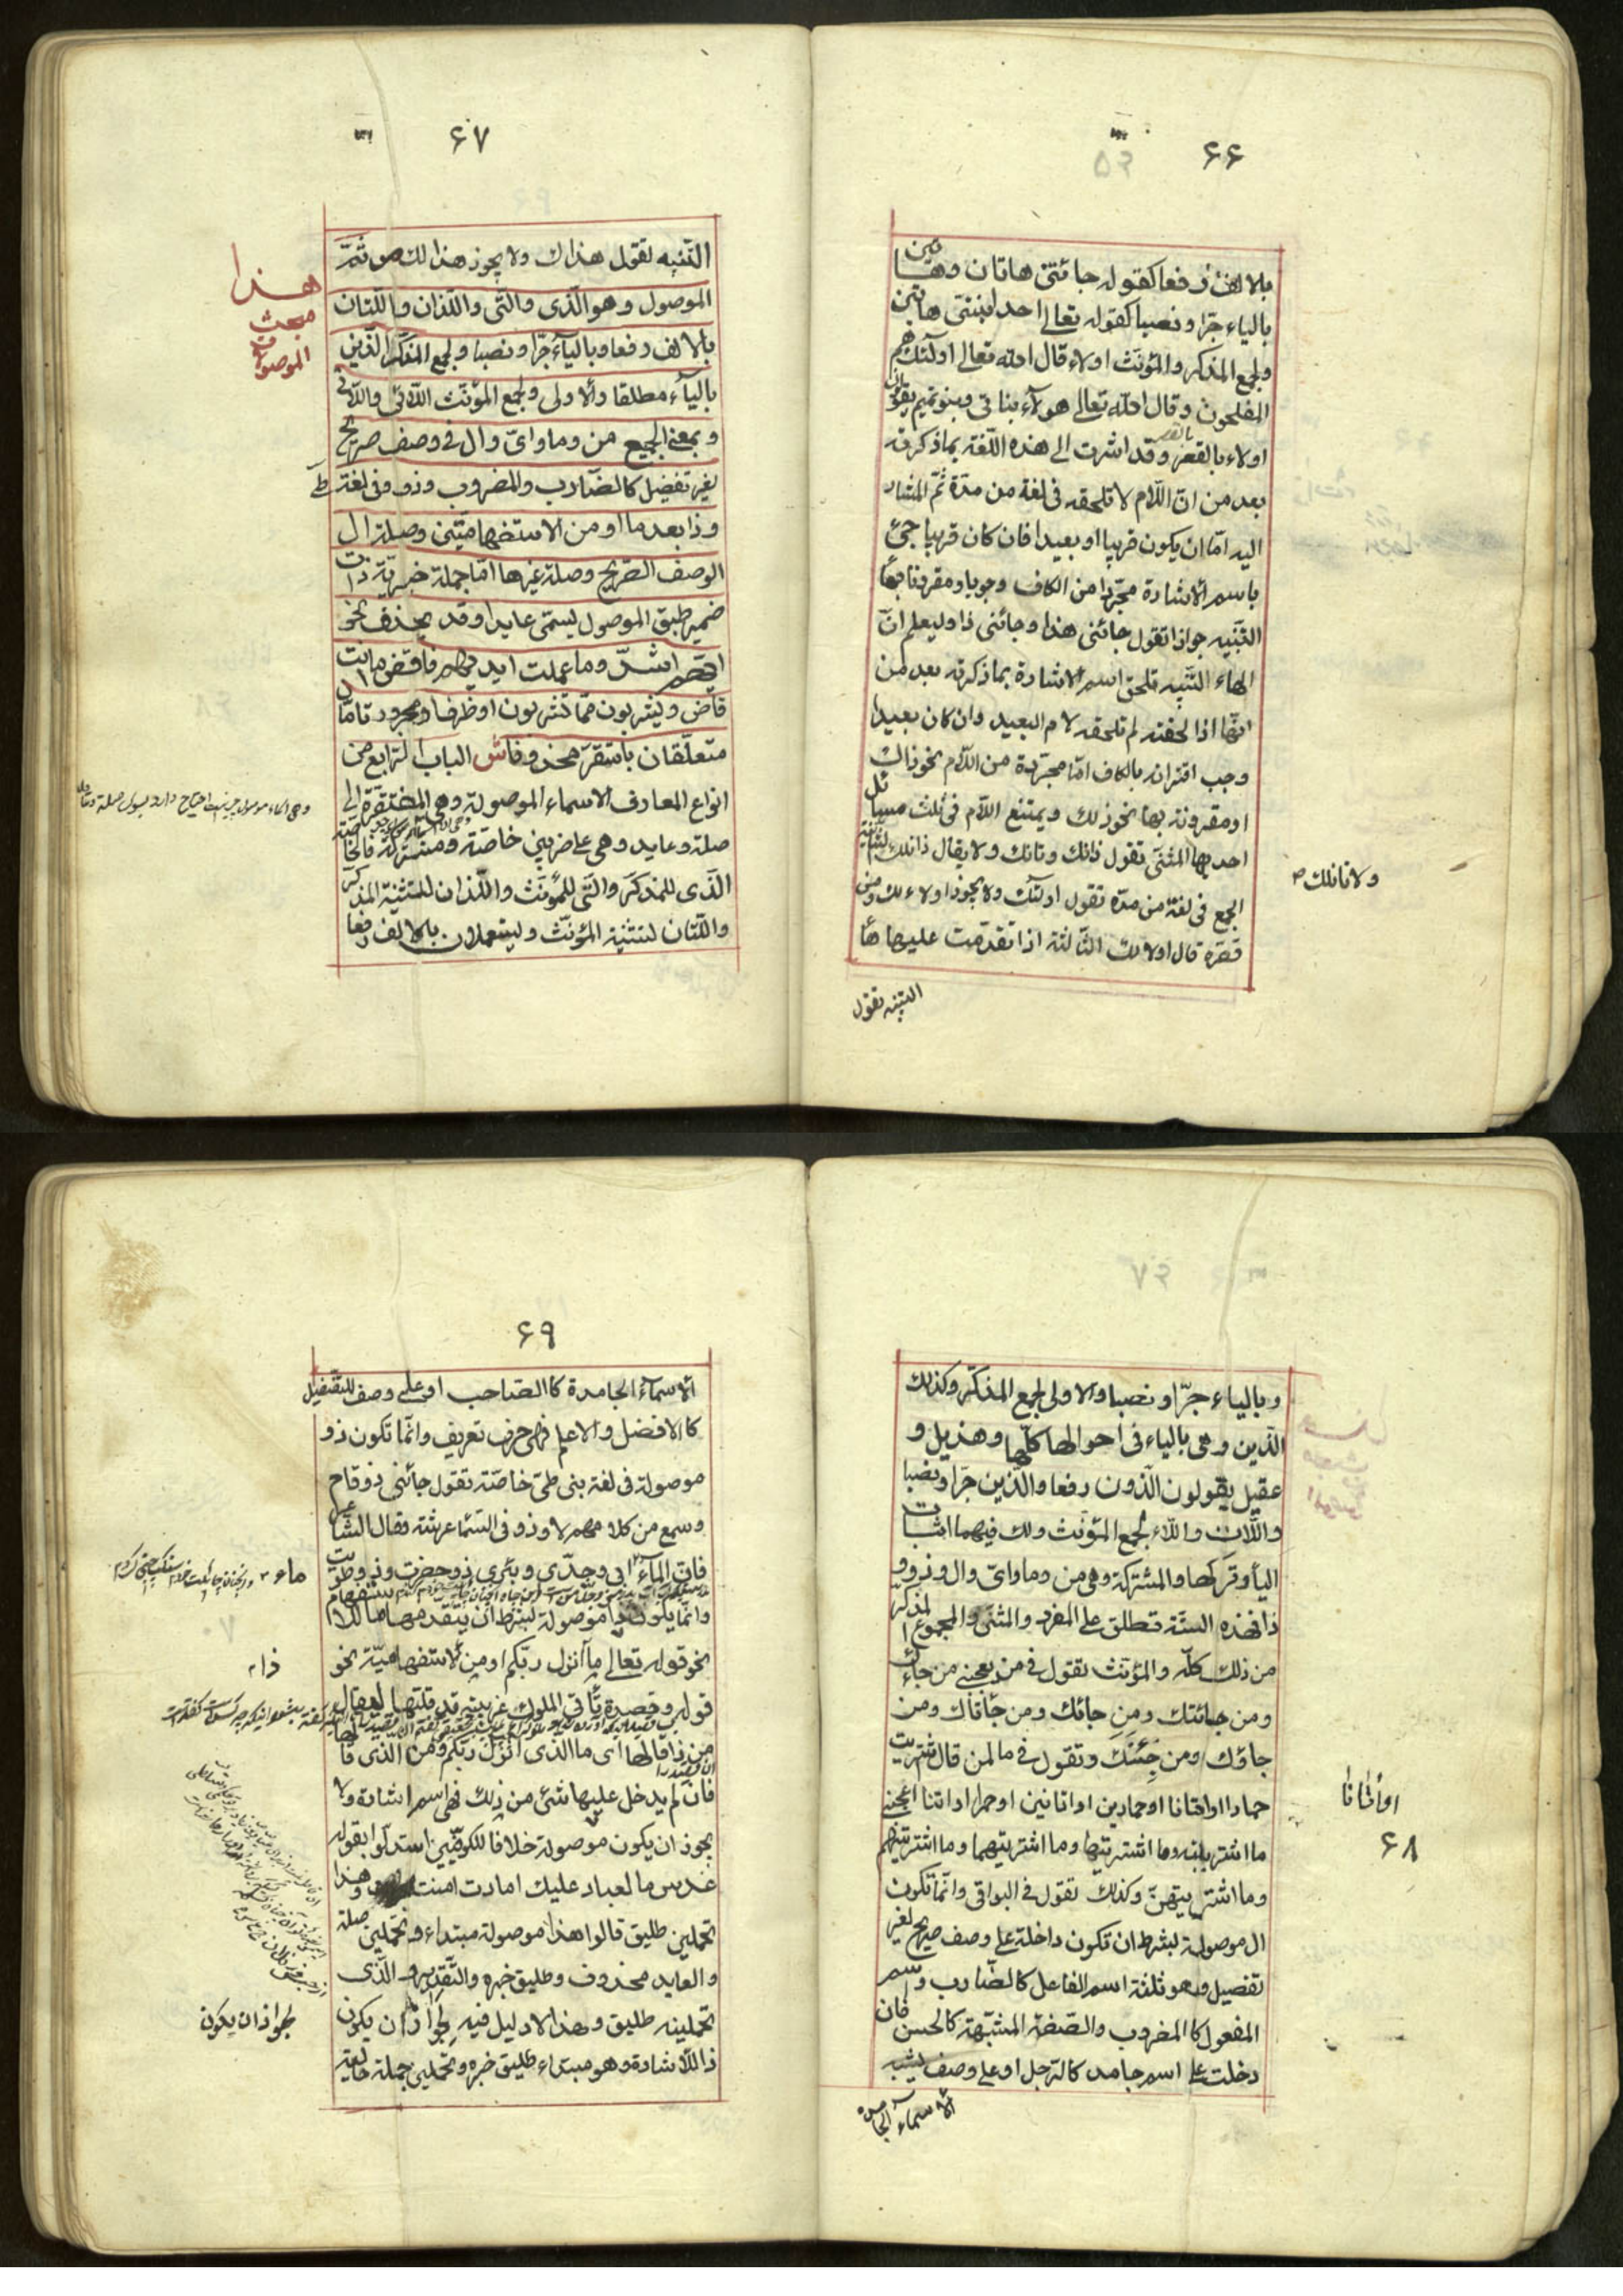 ۶۶
بالالف رفعا كقوله جائتنى هاتان وهاتين
بالياء جرّا ونصبا كقوله تعالى احد ابنتى هاتين
ولجمع المذكر والمؤنّث اولاء قال الله تعالى اولئك هم
المفلحون وقال الله تعالى هولآء بناتى وبنو تميم يقولون
اولاء بالقصر وقد اشرت الى هذه اللّغة بما ذكرته
بعد من انّ اللّام لا تلحقه فى لغة من مدّة ثمّ المشار
اليه امّا ان يكون قريبا او بعيدا فان كان قريبا جئ
باسم الاشارة مجرّدا من الكاف وجوبا ومقرونا بها
التّنبيه جوازا تقول جائنى هذا وجائنى ذا وليعلم انّ
الهاء التنبيه تلحق اسم الاشارة بما ذكرته بعد من
انّها اذا لحقته لم تلحقه لام البعيد وان كان بعيدا
وجب اقترانه بالكاف امّا مجرّدة من اللّام نحو ذاك
او مقرونة بها نحو ذلك ويمتنع اللّام فى ثلث مسائل
احديها المثنّى تقول ذانك وتانك ولا يقال ذانلك الثّانية
ولا تانلك
الجمع فى لغة من مدّه تقول اولئك ولا يجوز اولاء لك ومن
قصره قال اولالك الثّالثة اذا تقدّمت عليها ها
التنبيه تقول
۶۷
التّنبيه تقول هذاك ولا يجوز هذا لك ص ثمّ
الموصول وهو الّذى والتى واللّذان واللّتان
بالالف رفعا وبالياء جرّا ونصبا ولجمع المذكّر الّذين
بالياء مطلقا والاولى ولجمع المؤنّث اللّائى واللّاتى
وبمعنى الجميع من وما واىّ وال فى وصف صريح
لغير تفضيل كالضّارب والمضروب وذو فى لغة طىّ
وذا بعد ما او من الاستفهاميّتين وصلة ال
الوصف الصّريح وصلة غيرها امّا جملة خبريّة ذات
ضمير طبق الموصول يسمّى عايدا وقد يحذف نحو
ايّهم اشدّ وما عملت ايديهم فاقض ما انت
قاض ويشربون ممّا تشربون او ظرف او مجرور تامّان
متعلّقان باستقرّ محذوفا ش الباب الرّابع من
انواع المعارف الاسماء الموصولة وهى المفتقرة الى
صلة وعايد وهى على ضربين خاصّة ومشتركة فالخاصّة
الّذى للمذكّر والتى للمؤنّث واللّذان لتثنية المذكّر
واللّتان لتثنية المؤنّث ويستعملان بالالف رفعا
هذا
مبحث
الموصول
۶۸
وبالياء جرّا ونصبا والاولى لجمع المذكّر وكذلك
الّذين وهى بالياء فى احوالها كلّها وهذيل و
عقيل يقولون الّذون رفعا والّذين جرّا ونصبا
واللّات واللّاء لجمع المؤنّث ولك فيهما اثبات
اليأ وتركها والمشتركة وهى من وما واىّ وال وذو و
ذا فهذه الستّة تطلق على المفرد والمثنّى والمجموع المذكّر
من ذلك كلّه والمؤنّث تقول فى من يعجبنى من جائك
ومن جائتك ومن جائاك ومن جائتاك ومن
جاؤك ومن جئنك وتقول فى ما لمن قال اشتريت
حمارا او اتانا او حمارين او اتانين او حمرا او اتنا اعجبنى
ما اشتريته وما اشتريتها وما اشتريتهما وما اشتريتهم
وما اشتريتهنّ وكذلك تقول فى البواقى وانّما تكون
ال موصولة بشرط ان تكون داخلة على وصف صريح لغير
تفضيل وهو ثلثة اسم الفاعل كالضّارب واسم
المفعول كالمضروب والصّفة المشبّهة كالحسن فان
دخلت على اسم جامد كالرّجل او على وصف يشبه
الاسماء الجامدة
او اتانا
۶۹
الاسمآء الجامدة كالصّاحب او على وصف للتّفضيل
كالافضل والاعلم فهى حرف تعريف وانّما تكون ذو
موصولة فى لغة بنى طىّ خاصّة تقول جائنى ذو قام
وسمع من كلامهم لا وذو فى السّماء عرشه وقال الشّاعر
فانّ المآء ابى وجدّى وبئرى ذو حفرت وذو طويت
وانّما يكون ذا موصولة بشرط ان يتقدّمها ما الاستفهام
نحو قوله تعالى ما انزل ربّكم او من الاستفهاميّة نحو
قوله وقصيدة تأتى الملوك غريبة قد قلتها ليقال
من ذا قالها اى ما الّذى انزل ربّكم ومن الّذى قالها
فان لم يدخل عليها شئ من ذلك فهى اسم اشارة ولا
يجوز ان يكون موصولة خلافا للكوفيّين استدلّوا بقوله
عدس ما لعباد عليك امارة امنت وهذا
تحملين طليق قالوا هذا موصولة مبتداء وتحملين صلة
والعايد محذوف وطليق خبره والتّقدير والّذى
تحملينه طليق وهذا لا دليل فيه لجواز ان يكون
ذا للاشارة وهو مبتداء وطليق خبره وتحملين جملة حاليّة
ماء
ذا
لجواز ان يكون